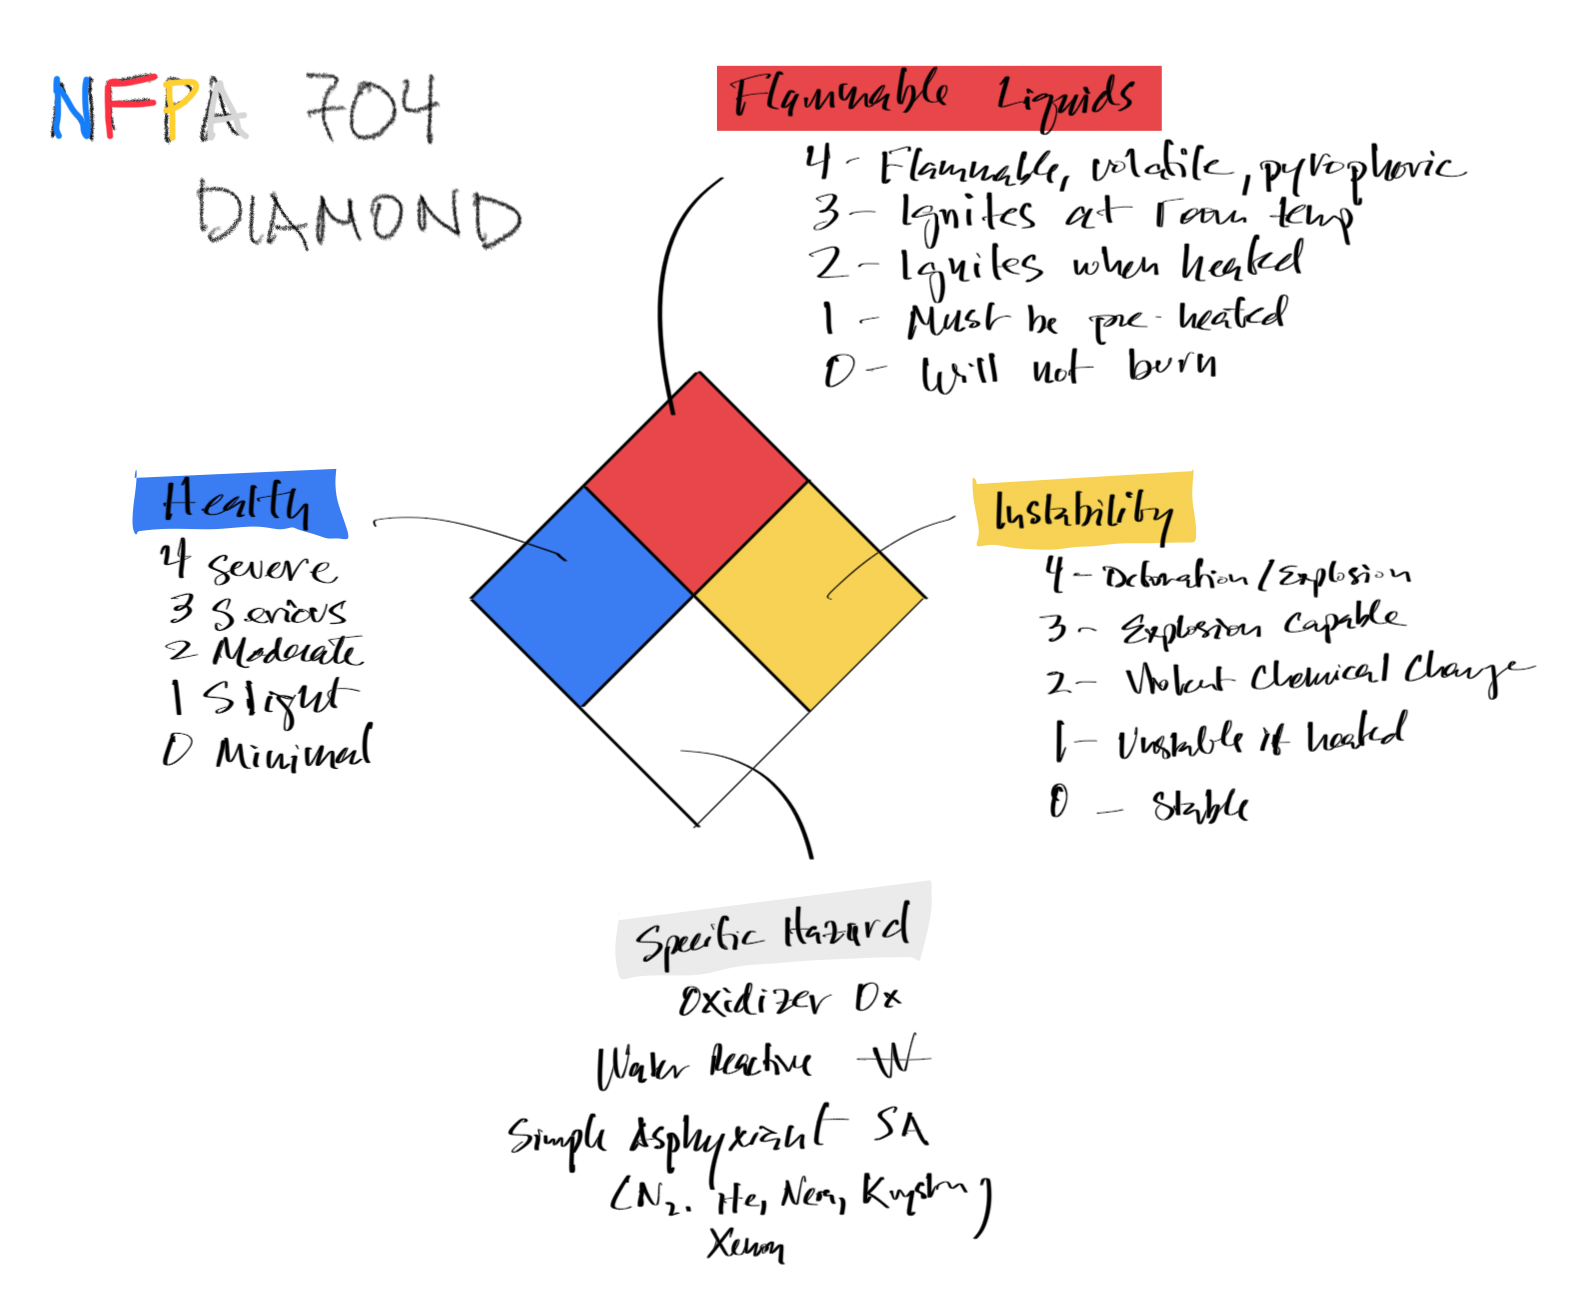 NFPA 704
DIAMOND
Flammable Liquids
4 - Flammable, volatile, pyrophoric
3 - Ignites at room temp
2 - Ignites when heated
1 - Must be pre-heated
0 - Will not burn
Health
4 severe
3 Serious
2 Moderate
1 Slight
0 Minimal
Instability
4 - Detonation/Explosion
3 - Explosion Capable
2 - Violent Chemical Change
1 - Unstable if heated
0 - Stable
Specific Hazard
Oxidizer Ox
Water Reactive W
Simple Asphyxiant SA
(N₂. He, Neon, )
Xenon